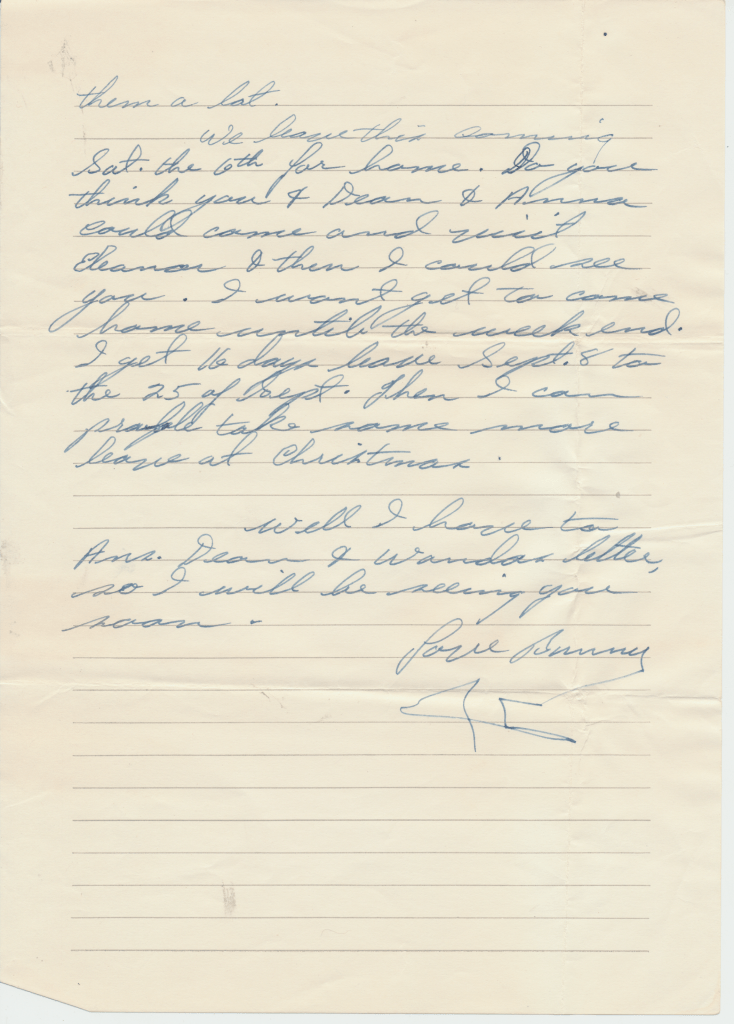 them a lot.
We leave this coming
Sat. the 6th for home. Do you
think you & Dean & Anna
could come and visit
Eleanor & then I could see
you. I wont get to come
home until the week end.
I get 16 days leave Sept. 8 to
the 25 of Sept. Then I can
take some more
leave at Christmas.
Well I have to
Ans. Dean & Wandas letter,
so I will be seeing you
soon.
Love Bunny